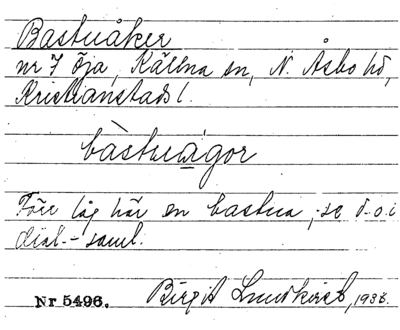 Bastuåker
nr 7 Öja, Källna sn, N. Åsbo hd,
Kristianstads l.
bàstuagor
Förr låg här en bastua, se d-o i
dial.-saml.
Nr 5496. Birgit Lundkvist, 193